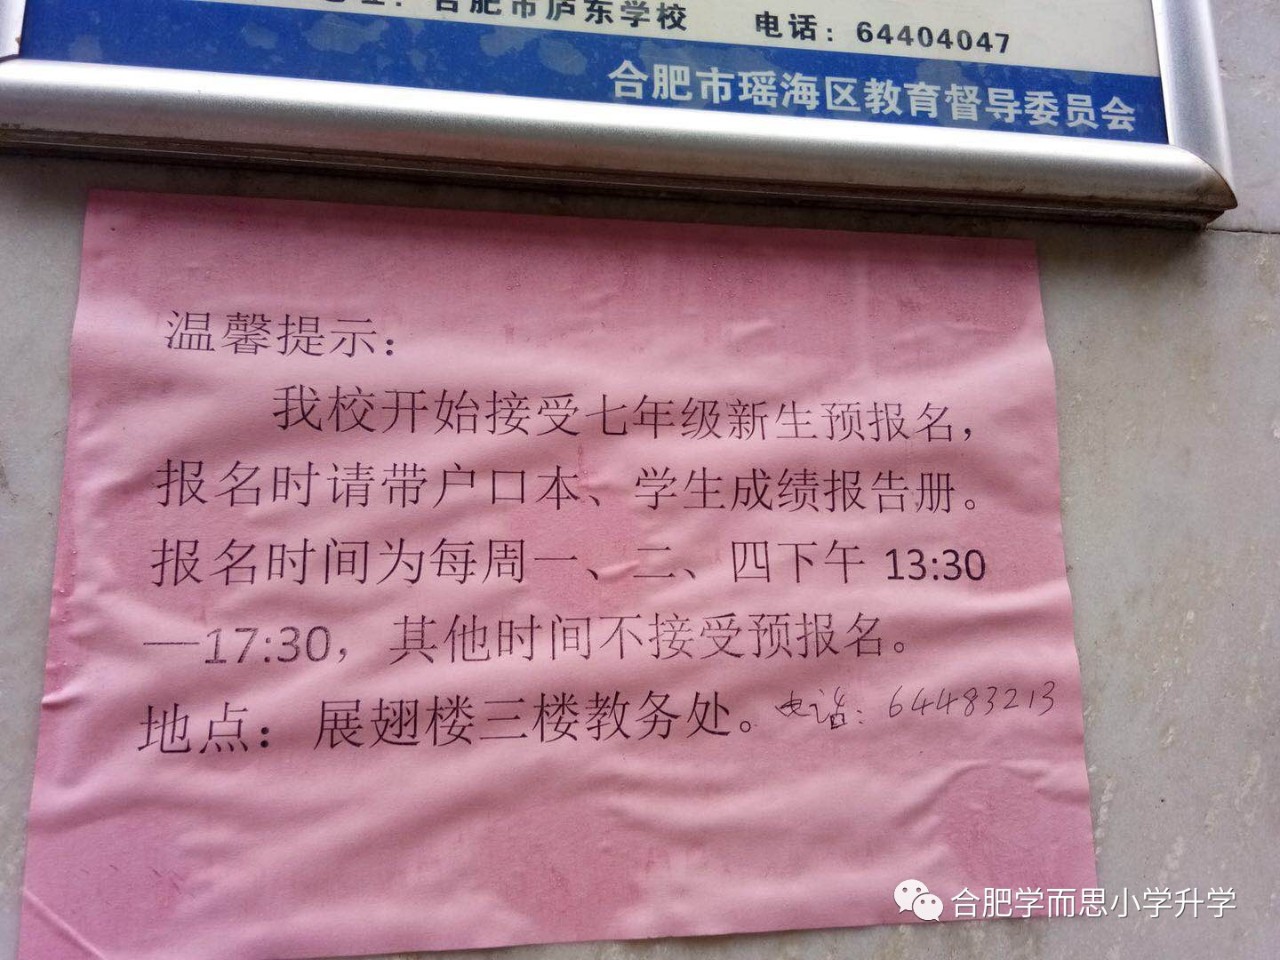 合肥市庐东学校 电话：64404047
合肥市瑶海区教育督导委员会
温馨提示：
我校开始接受七年级新生预报名，
报名时请带户口本、学生成绩报告册。
报名时间为每周一、二、四下午 13:30
—17:30，其他时间不接受预报名。
地点：展翅楼三楼教务处。电话：64483213
合肥学而思小学升学